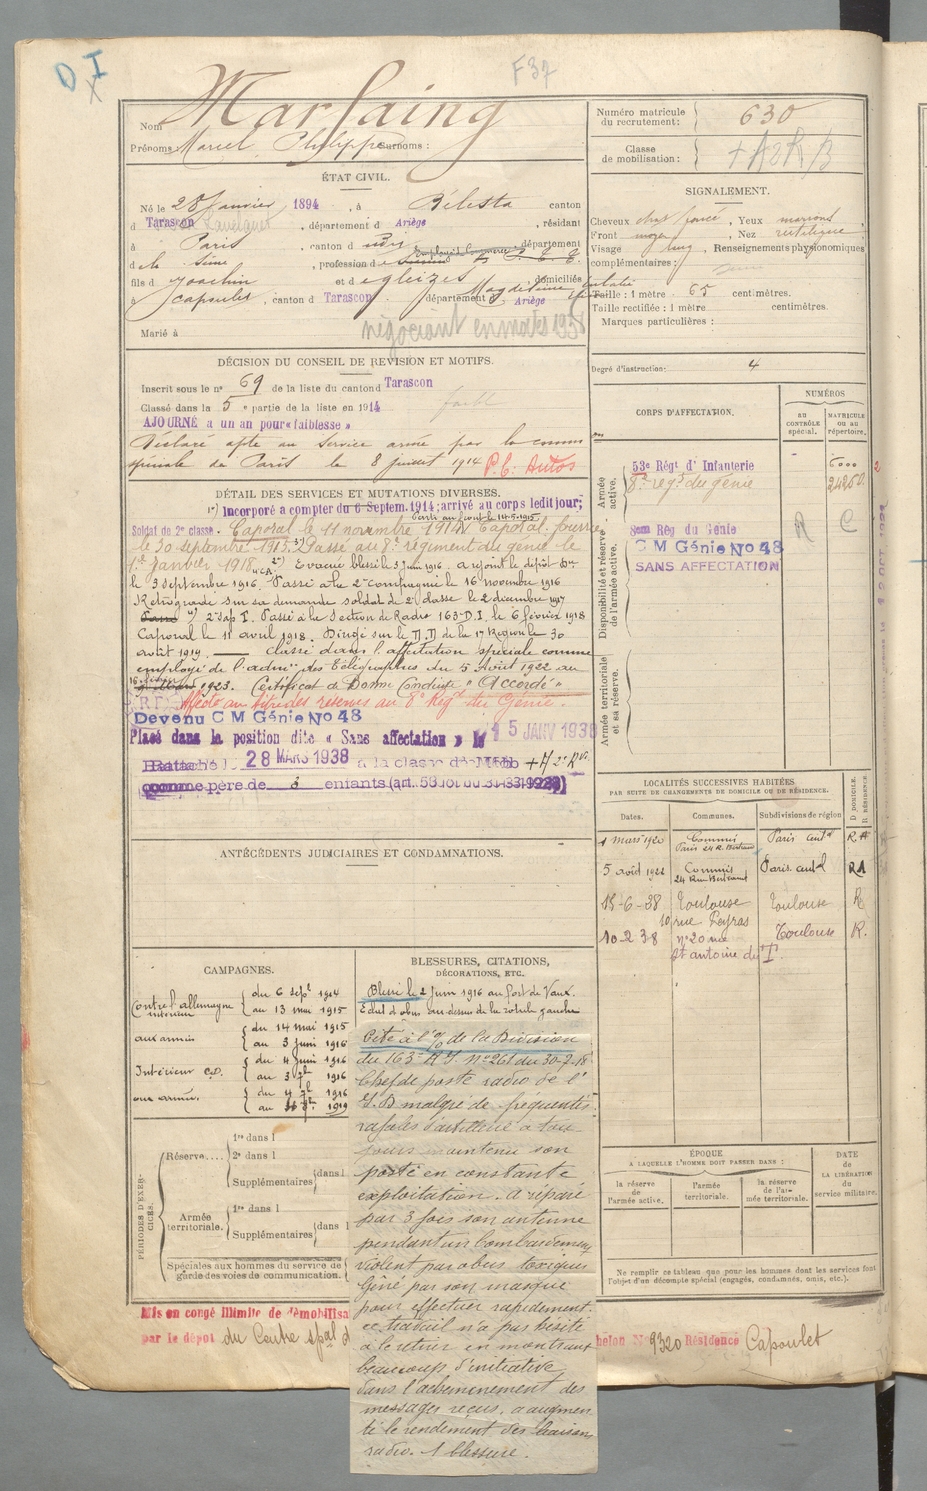 D I
X
F 37
Nom Marfaing
Prénoms Marcel Philippe Surnoms :
Numéro matricule du recrutement : 630
Classe de mobilisation :
ÉTAT CIVIL.
Né le 28 Janvier 1894, à Bélesta canton
d Tarascon, département d Ariège, résidant
à Paris, canton d, département
d la Seine, profession d
fils d Joachim et d Egleizes Magdeleine domiciliés
à Capoulet, canton d Tarascon département d Ariège
Marié à
négociant en 1938
SIGNALEMENT.
Cheveux chat. foncé, Yeux marrons
Front moyen, Nez rectiligne
Visage long, Renseignements physionomiques
complémentaires :
Taille : 1 mètre 65 centimètres.
Taille rectifiée : 1 mètre centimètres.
Marques particulières :
Degré d'instruction : 4
DÉCISION DU CONSEIL DE REVISION ET MOTIFS.
Inscrit sous le n° 69 de la liste du canton d Tarascon
Classé dans la 5e partie de la liste en 1914
faible
AJOURNÉ à un an pour « faiblesse »
Déclaré apte au service armé par la comm
spéciale de Paris le 8 juillet 1914 P.C. Autos
DÉTAIL DES SERVICES ET MUTATIONS DIVERSES.
1°) Incorporé à compter du 6 Septem. 1914; arrivé au corps ledit jour;
Parti au front le 14-5-1915
Soldat de 2e classe. Caporal le 11 novembre 1914. Caporal fourrier
le 30 septembre 1915. 3°) Passé au 8e régiment du génie le
1er Janvier 1918. 2°) Evacué blessé le 3 Juin 1916. a rejoint le dépôt
le 3 septembre 1916. Passé à la 2e compagnie le 16 novembre 1916
Rétrogradé sur sa demande soldat de 2e classe le 2 décembre 1917
Passé à la Section de Radio 163e D.I. le 6 février 1918
Caporal le 11 avril 1918. Dirigé sur le D.D de la 17 Région le 30
août 1919. — classé dans l'affectation spéciale comme
employé de l'admon des Télégraphes du 5 Août 1922 au
1923. Certificat de Bonne Conduite " Accordé "
Affecté au titre des réserves au 8e Régt du Génie.
Devenu C M Génie No 48
Placé dans la position dite « Sans affectation » le 15 JANV 1938
Rattaché le 28 MARS 1938 à la classe de Mob
comme père de 3 enfants (art. 58
CORPS D'AFFECTATION.
NUMÉROS
AU CONTRÔLE spécial.
MATRICULE OU AU répertoire.
Armée active.
53e Régt d' Infanterie
8e regt du génie
24250
Disponibilité et réserve de l'armée active.
8em Reg du Genie
C M Génie No 48
SANS AFFECTATION
R C
Armée territoriale et sa réserve.
LOCALITÉS SUCCESSIVES HABITÉES.
PAR SUITE DE CHANGEMENTS DE DOMICILE OU DE RÉSIDENCE.
Dates. Communes. Subdivisions de région D DOMICILE. R RÉSIDENCE.
1 mars 1920 Commis Paris 24 R. Bertrand Paris cental RA
5 août 1922 Commis 24 Rue Bertrand Paris central RA
15-6-28 Toulouse 10 rue Peyras Toulouse R
10-2-38 n° 20 rue St antoine du T. Toulouse R.
ANTÉCÉDENTS JUDICIAIRES ET CONDAMNATIONS.
CAMPAGNES.
Contre l'allemagne
intérieur du 6 septe 1914 au 13 mai 1915
aux armées du 14 mai 1915 au 3 juin 1916
Intérieur C.D. du 4 juin 1916 au 3 7bre 1916
aux armées. du 4 7bre 1916 au 1919
BLESSURES, CITATIONS,
DÉCORATIONS, ETC.
Blessé le 2 Juin 1916 au fort de Vaux.
Eclat d'obus au-dessus de la rotule gauche
Cité à l'o/ de la Division
du 163e R.I. N° 261 du 30-7-18
Chef de poste radio de l'
I.D malgré de fréquentes
rafales d'artillerie a tou-
jours maintenu son
poste en constante
exploitation. A réparé
par 3 fois son antenne
pendant un bombardement
violent par obus toxiques
Gêné par son masque
pour effectuer rapidement
ce travail n'a pas hésité
à le retirer en montrant
beaucoup d'initiative
dans l'acheminement des
messages reçus, a augmen
té le rendement des liaisons
radio. 1 blessure.
PÉRIODES D'EXERCICES.
Réserve....
1re dans l
2e dans l
Supplémentaires dans l
Armée territoriale.
1re dans l
Supplémentaires dans l
Spéciales aux hommes du service de
garde des voies de communication.
ÉPOQUE
A LAQUELLE L'HOMME DOIT PASSER DANS :
la réserve de l'armée active.
l'armée territoriale.
la réserve de l'armée territoriale.
DATE de LA LIBÉRATION du service militaire.
Ne remplir ce tableau que pour les hommes dont les services font
l'objet d'un décompte spécial (engagés, condamnés, omis, etc.).
Mis en congé illimité de démobilisa
par le dépôt du Centre spal d
helon N° 9320 Résidence Capoulet